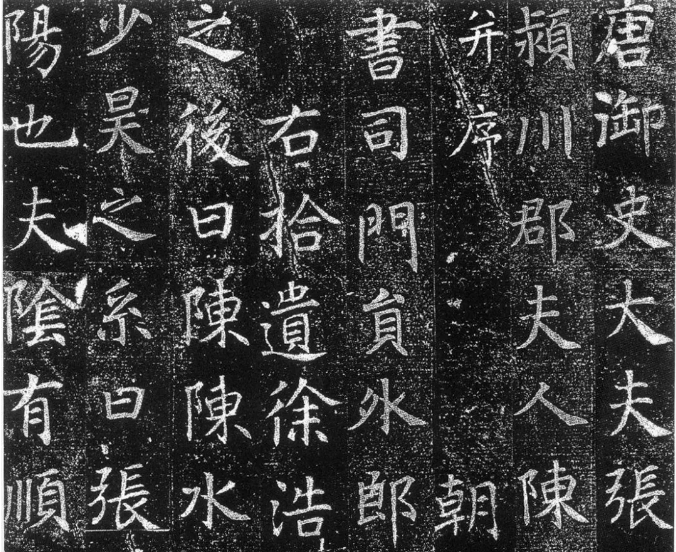 唐御史大夫張
潁川郡夫人陳
并序　朝
書司門員外郎
右拾遺徐浩
之後曰陳陳水
少昊之系曰張
陽也夫陰有順